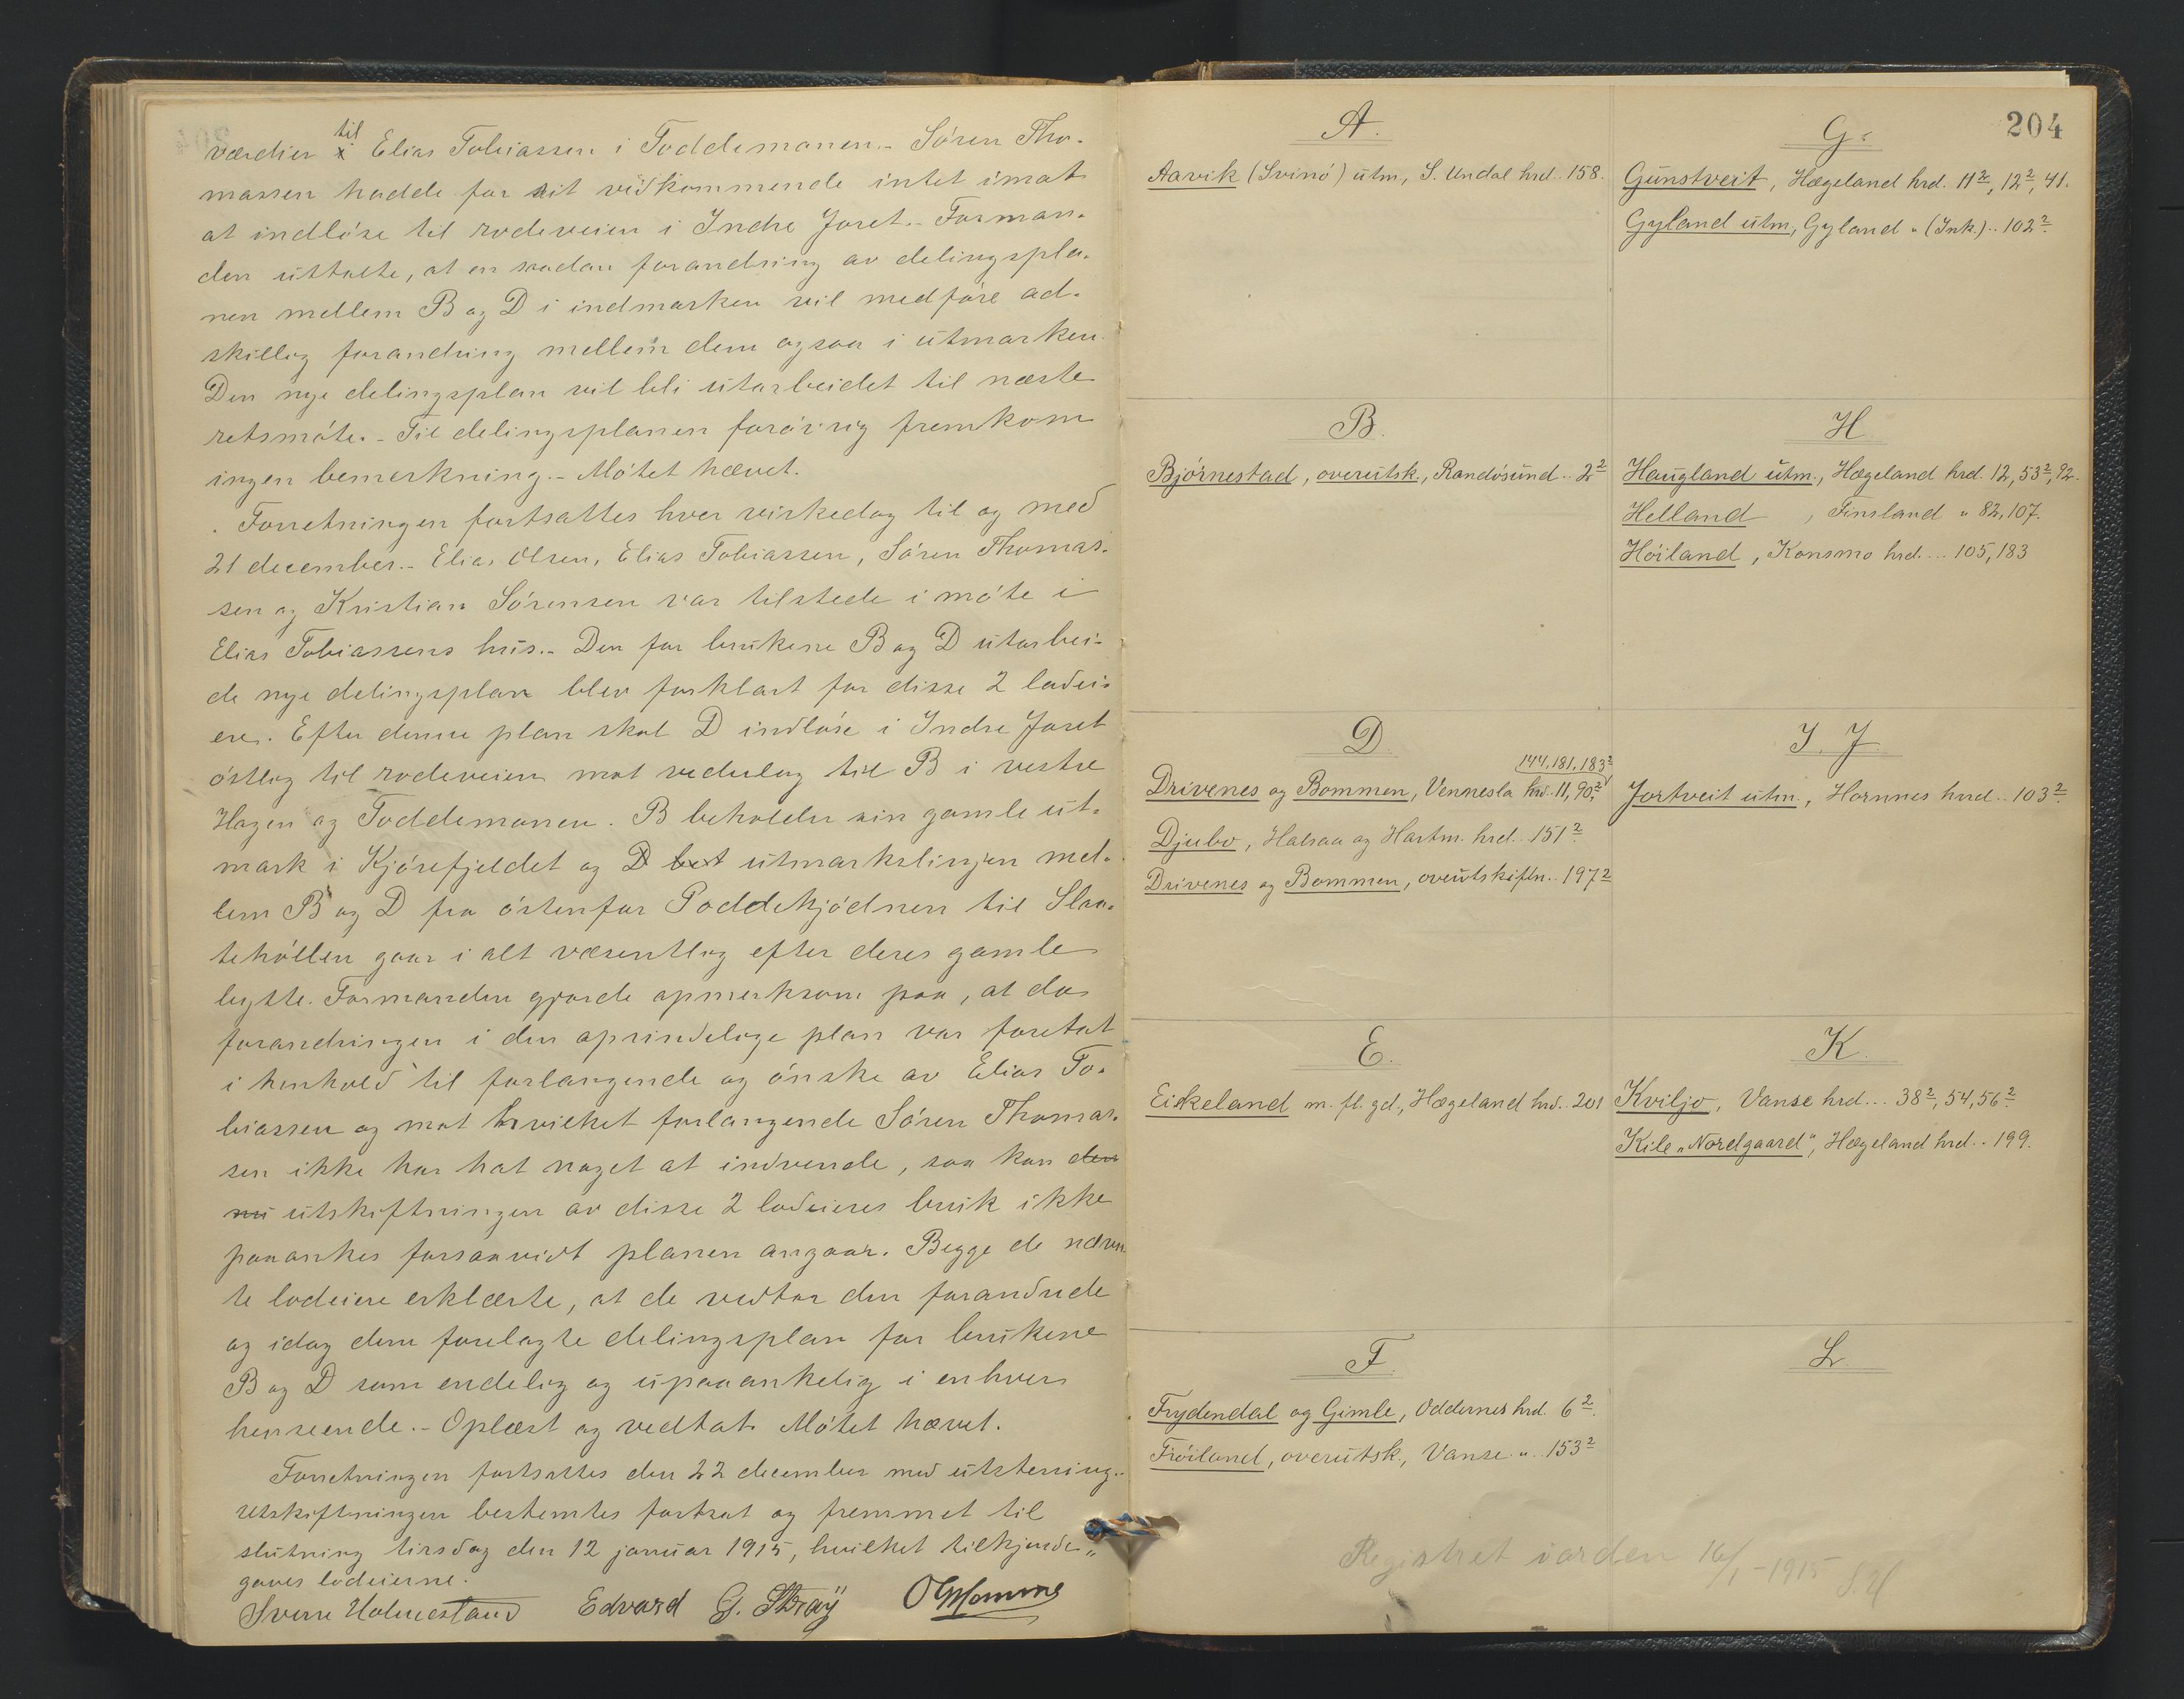 til
værdier i Elias Tobiassen i Toddemonen.- Sören Tho-
massen hadde for sit vedkommende intet imot
at indlöse til rodeveien i Indre Joret.- Forman-
den uttalte, at en saadan forandring av delingspla-
nen mellem B og D i indmarken vil medföre ad-
skillig forandring mellem dem ogsaa i utmarken.
Den nye delingsplan vil bli utarbeidet til næste
retsmöte.- Til delingsplanen forövrig fremkom
ingen bemerkning.- Mötet hævet.
Forretningen fortsattes hver virkedag til og med
21 december.- Elias Olsen, Elias Tobiassen, Sören Thomas-
sen og Kristian Sörensen var tilstede i möte i
Elias Tobiassens hus.- Den for brukene B og D utarbei-
de nye delingsplan blev forklart for disse 2 lodei-
ere. Efter denne plan skal D indlöse i Indre Joret
östlig til rodeveien mot vederlag til B i vestre
Hagen og Toddemonen. B beholder sin gamle ut-
mark i Kjörefjeldet og D bet utmarkslinjen mel-
lem B og D fra östenfor Poddekjödnen til Slaa-
tehöllen gaar i alt væsentlig efter deres gamle
bytte. Formanden gjorde opmerksom paa, at da
forandringen i den oprindelige plan var foretat
i henhold til forlangende og önske av Elias To-
biassen og mot hvilket forlangende Sören Thomas-
sen ikke har hat noget at indvende, saa kan den
nu utskiftningen av disse 2 lodeieres bruk ikke
paaankes forsaavidt planen angaar. Begge de nævn-
te lodeiere erklærte, at de vedtar den forandrede
og idag dem forelagte delingsplan for brukene
B og D som endelig og upaaankelig i enhver
henseende.- Oplæst og vedtat. Mötet hævet.
Forretningen fortsattes den 22 december med utstening.-
Utskiftningen bestemtes fortsat og fremmet til
slutning tirsdag den 12 januar 1915, hvilket tilkjende-
gaves lodeierne.
Sverre Holmestand Edvard G. Stray O Homme
204
A.
Aavik (Svinö) utm, S. Undal hrd. 158.
B.
Björnestad, overutsk., Randösund.. 2²
D.
144, 181, 183²
Drivenes og Bommen, Vennesla hrd. 11, 90²,
Djubo, Halsaa og Hartm. hrd.. 151²
Drivenes og Bommen, overutskiftn.. 197²
E.
Eikeland m. fl. gd., Hægeland hrd.. 201
F.
Frydendal og Gimle, Oddernes hrd. 6².
Fröiland, overutsk., Vanse ".. 153²
G.
Gunstveit, Hægeland hrd. 11², 12², 41.
Gyland utm, Gyland " (Ink.).. 102².
H
Haugland utm., Hægeland hrd. 12, 53², 92.
Helland, Finsland " 82, 107.
Höiland, Konsmo hrd... 105, 183
I. J.
Jortveit utm., Hornnes hrd.. 103².
K.
Kviljo, Vanse hrd... 38², 54, 56².
Kile "Nordgaard", Hægeland hrd.. 199.
L.
Registret i orden 16/1 - 1915 S.H